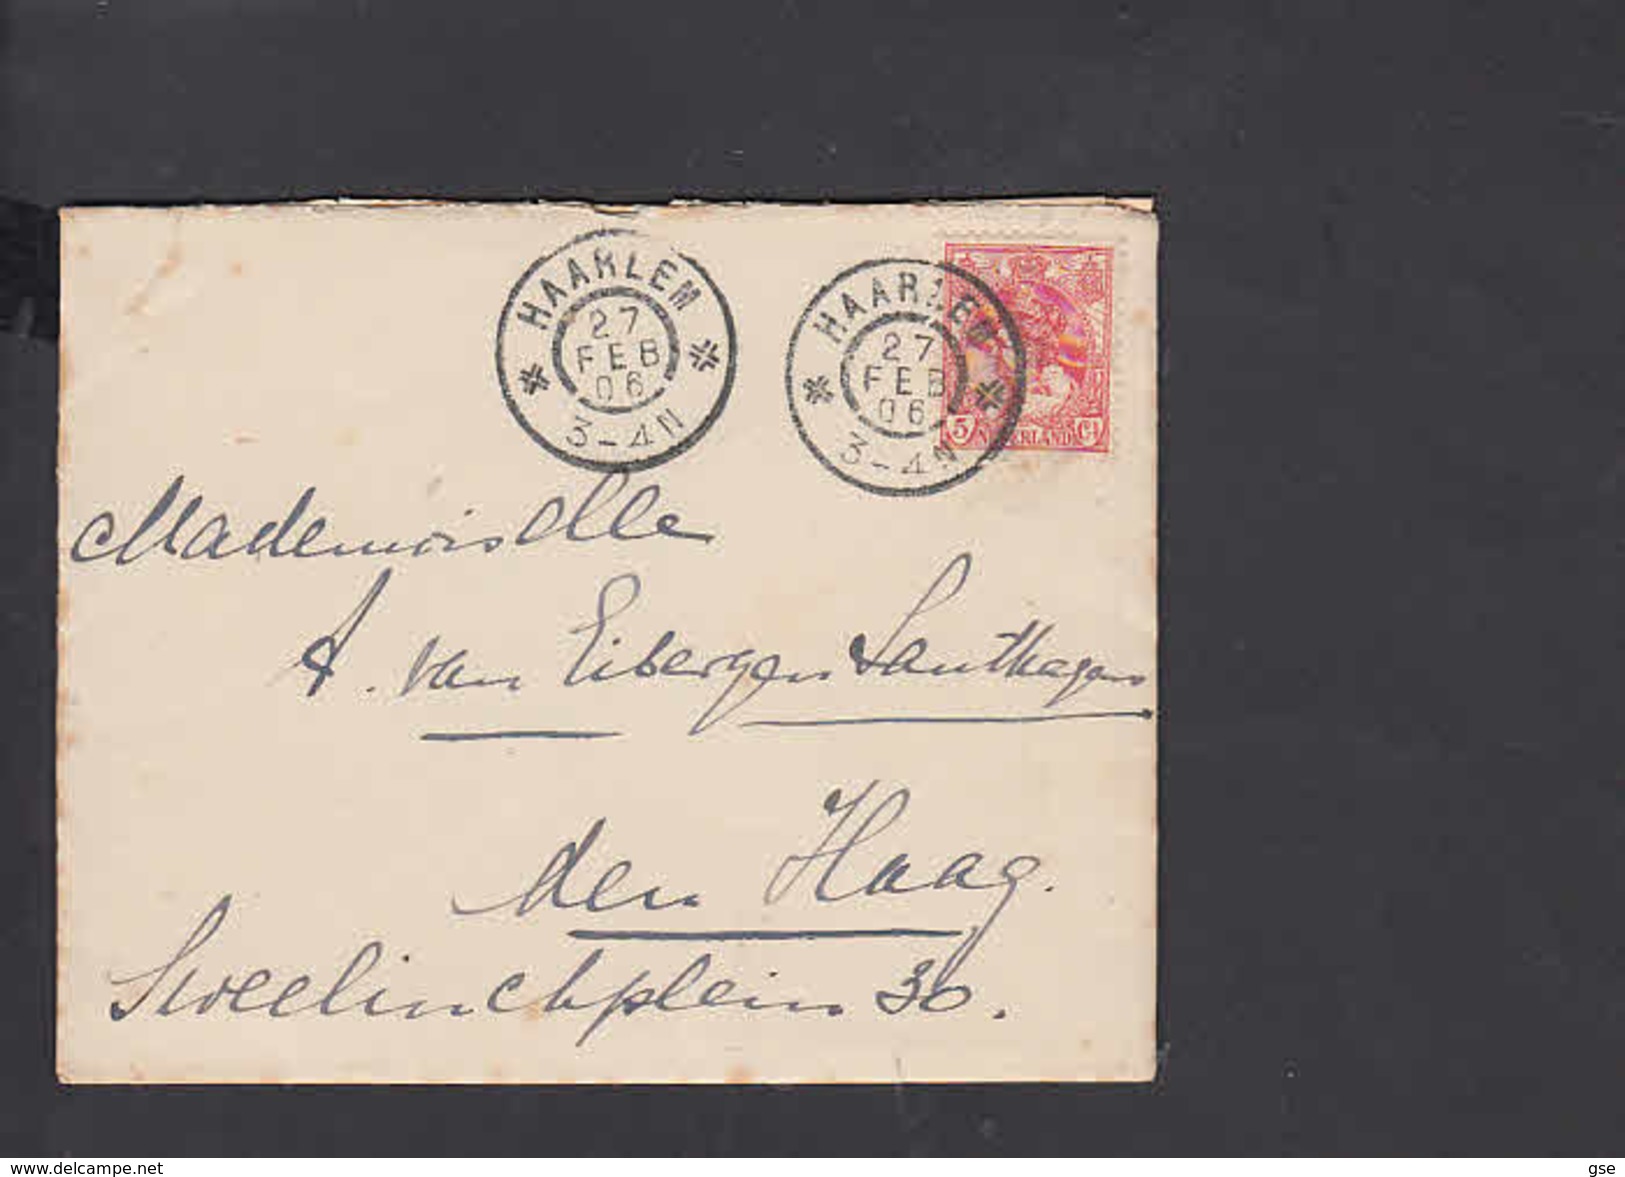 HAARLEM
27
FEB
06
3-4N
HAARLEM
27
FEB
06
3-4N
5 NEDERLAND Ct
Mademoiselle
A. van Eibergen Santhagens
den Haag.
Sweelinckplein 30.
www.delcampe.net
gse